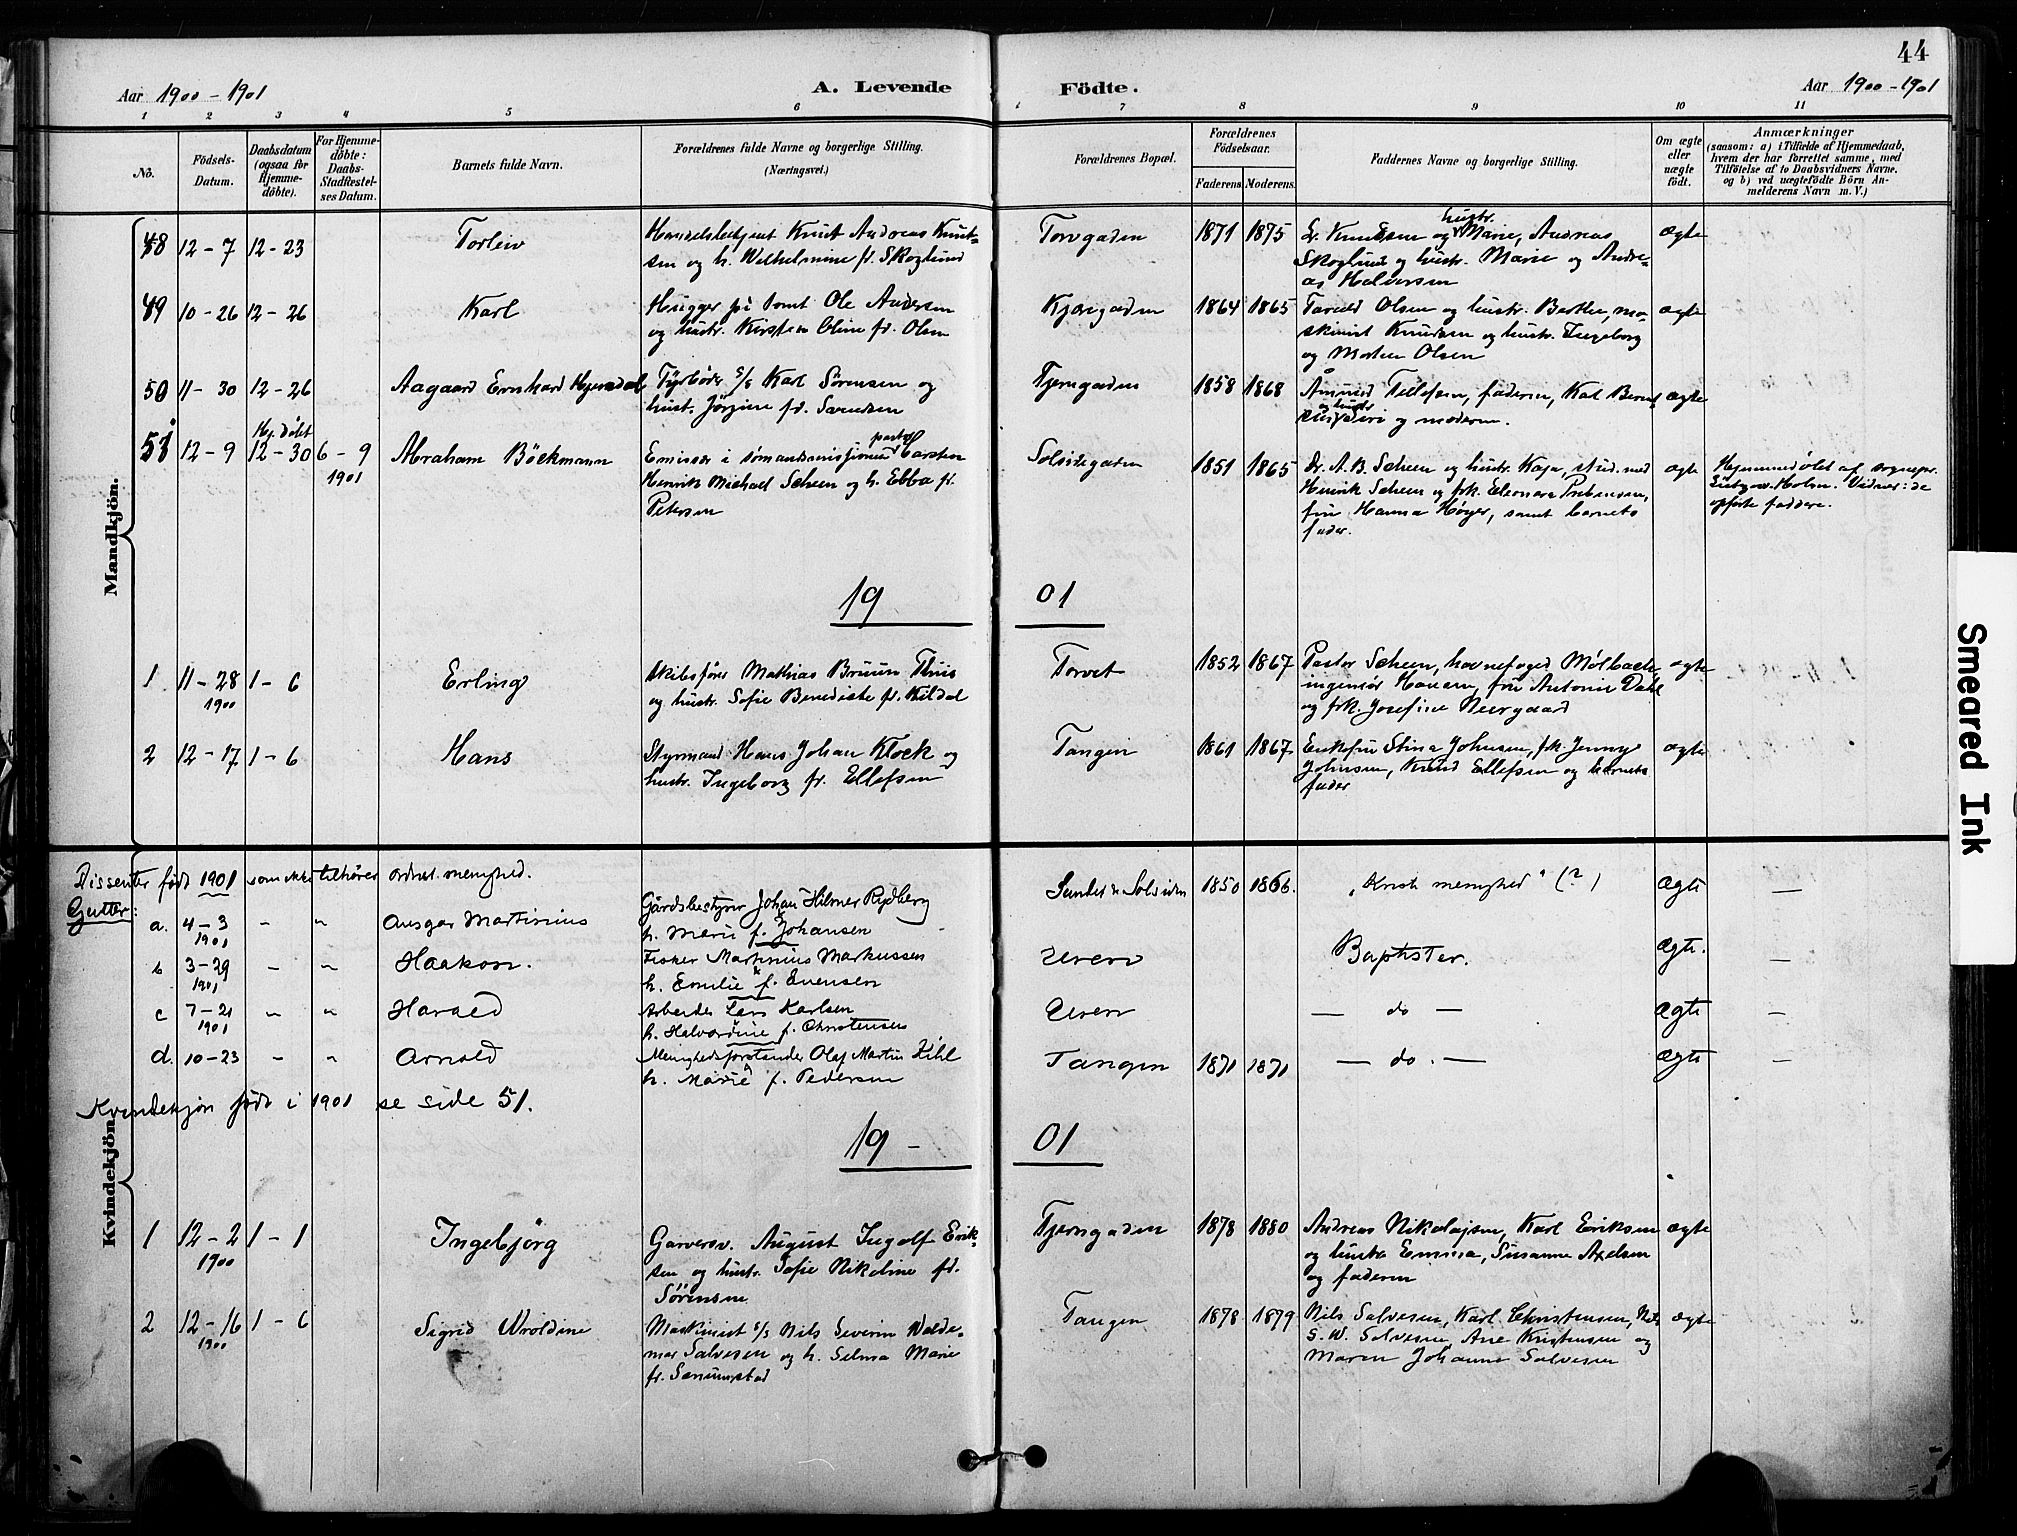 44
Aar 1900 - 1901
A. Levende Födte.
Aar 1900 - 1901
1 2 3 4 5 6 7 8 9 10 11
No.
Födsels-Datum.
Daabsdatum (ogsaa for Hjemmedöbte).
For Hjemmedöbte: Daabs-Stadfæstelses Datum.
Barnets fulde Navn.
Forældrenes fulde Navne og borgerlige Stilling.
(Næringsvei.)
Forældrenes Bopæl.
Forældrenes Födselsaar.
Faderens. Moderens.
Faddernes Navne og borgerlige Stilling.
Om ægte eller uægte födt.
Anmærkninger
(saasom: a) i Tilfælde af Hjemmedaab,
hvem der har forrettet samme, med
Tilföielse af to Daabsvidners Navne.
og b) ved uægtefödte Börn An-
melderens Navn m. V.)
Mandkjön.
48 12-7 12-23 Torleiv
Handelsbetjent Knut Andreas Knut-
sen og h. Wilhelmine fd. Skoglund
Torvgaden 1871 1875
L. Knudsen og hustr. Marie, Andreas
Skoglund og hustr. Marie og Andre-
as Halvorsen
ægte
49 10-26 12-26 Karl
Hugger på tomt Ole Andersen
og hustr. Kirsten Oline fd. Olsen
1864 1865
Olsen og hustr. Berthe, ma-
skinist Knudsen og hustr. Ingeborg
og Olsen
ægte
50 11-30 12-26 Aagaard Ernhard
Fyrbøder s/s Karl Sørensen og
hust. Jörgine fd. Svendsen
Tjerngaden 1858 1868
Åmund Tellefsen, faderen, Karl
og hustr. og moderen.
ægte
51 12-9 Hj.døbt 12-30 6-9 1901 Abraham Böckmann
Emissær i sømandsmissionen pastor Carsten
Henrik Michael Scheen og h. Ebba fd.
Petersen
Solsidegaden 1851 1865
Dr. A.B. Scheen og hustr. Kaja, stud. med
Henrik Scheen og frk. Eleonora Prebensen,
fru Hanna Høyer, samt barnets
fader.
ægte
Hjemmedøbt af sognepr.
Holm. Vidner: de
opførte faddere.
19 01
1 11-28 1900 1-6 Erling
Skibsfører Mathias Bruun Thiis
og hustr. Sofie Benedicte fd. Kildal
Torvet 1852 1867
Pastor Scheen, havnefoged Mølbach,
ingeniør Hansen, fru Antonie Dahl
og frk. Josefine Neergaard
ægte
2 12-17 1-6 Hans
Styrmand Hans Johan Klock og
hustr. Ingeborg fd. Ellefsen
Tangen 1861 1867
Enkefru Stina Johnsen, frk. Jenny
Johnsen, Knud Ellefsen og barnets
fader
ægte
Dissenter født 1901 som ikke tilhører ordnet menighed.
Gutter:
a. 4-3 1901 - " Ansgar Martinius
Gårdsbestyrer Johan Hilmer Rydberg
h. Marie f. Johansen
Sundet & Solsiden 1850 1866.
„Kristi menighed" (?)
Ægte —
b 3-29 1901 - " Haakon.
Fisker Martinius Markussen
h. Emilie f. Evensen
Uren
Baptister.
Ægte. —
c 7-21 1901 " " Harald
Arbeider Lars Karlsen
h. Halvardine f. Christensen
Uren
— do —
Ægte —
d. 10-23 - " Arnold
Menighedsforstander Olaf Martin Kihl
h. Marie f. Pedersen
Tangen 1871 1871
— do. —
Ægte —
Kvindekjøn født i 1901 se side 51.
Kvindekjön.
19 - 01
1 12-2 1900 1-1 Ingebjörg
Garversv. August Ingolf Erik-
sen og hustr. Sofie Nikoline fd.
Sörensen
Tjerngaden 1878 1880
Andreas Nikolajsen, Karl Eriksen
og hustr. Emma, Susanne Axelsen
og faderen
ægte
2 12-16 1900 1-6 Sigrid Wroldine
Maskinist s/s Nils Severin Walde-
mar Salvesen og h. Selma Marie
fd. Sanumstad
Tangen 1878 1879
Nils Salvesen, Karl Christensen, Nils
S. W. Salvesen, Ane Kristensen og
Maren Johanne Salvesen
ægte
Smeared Ink